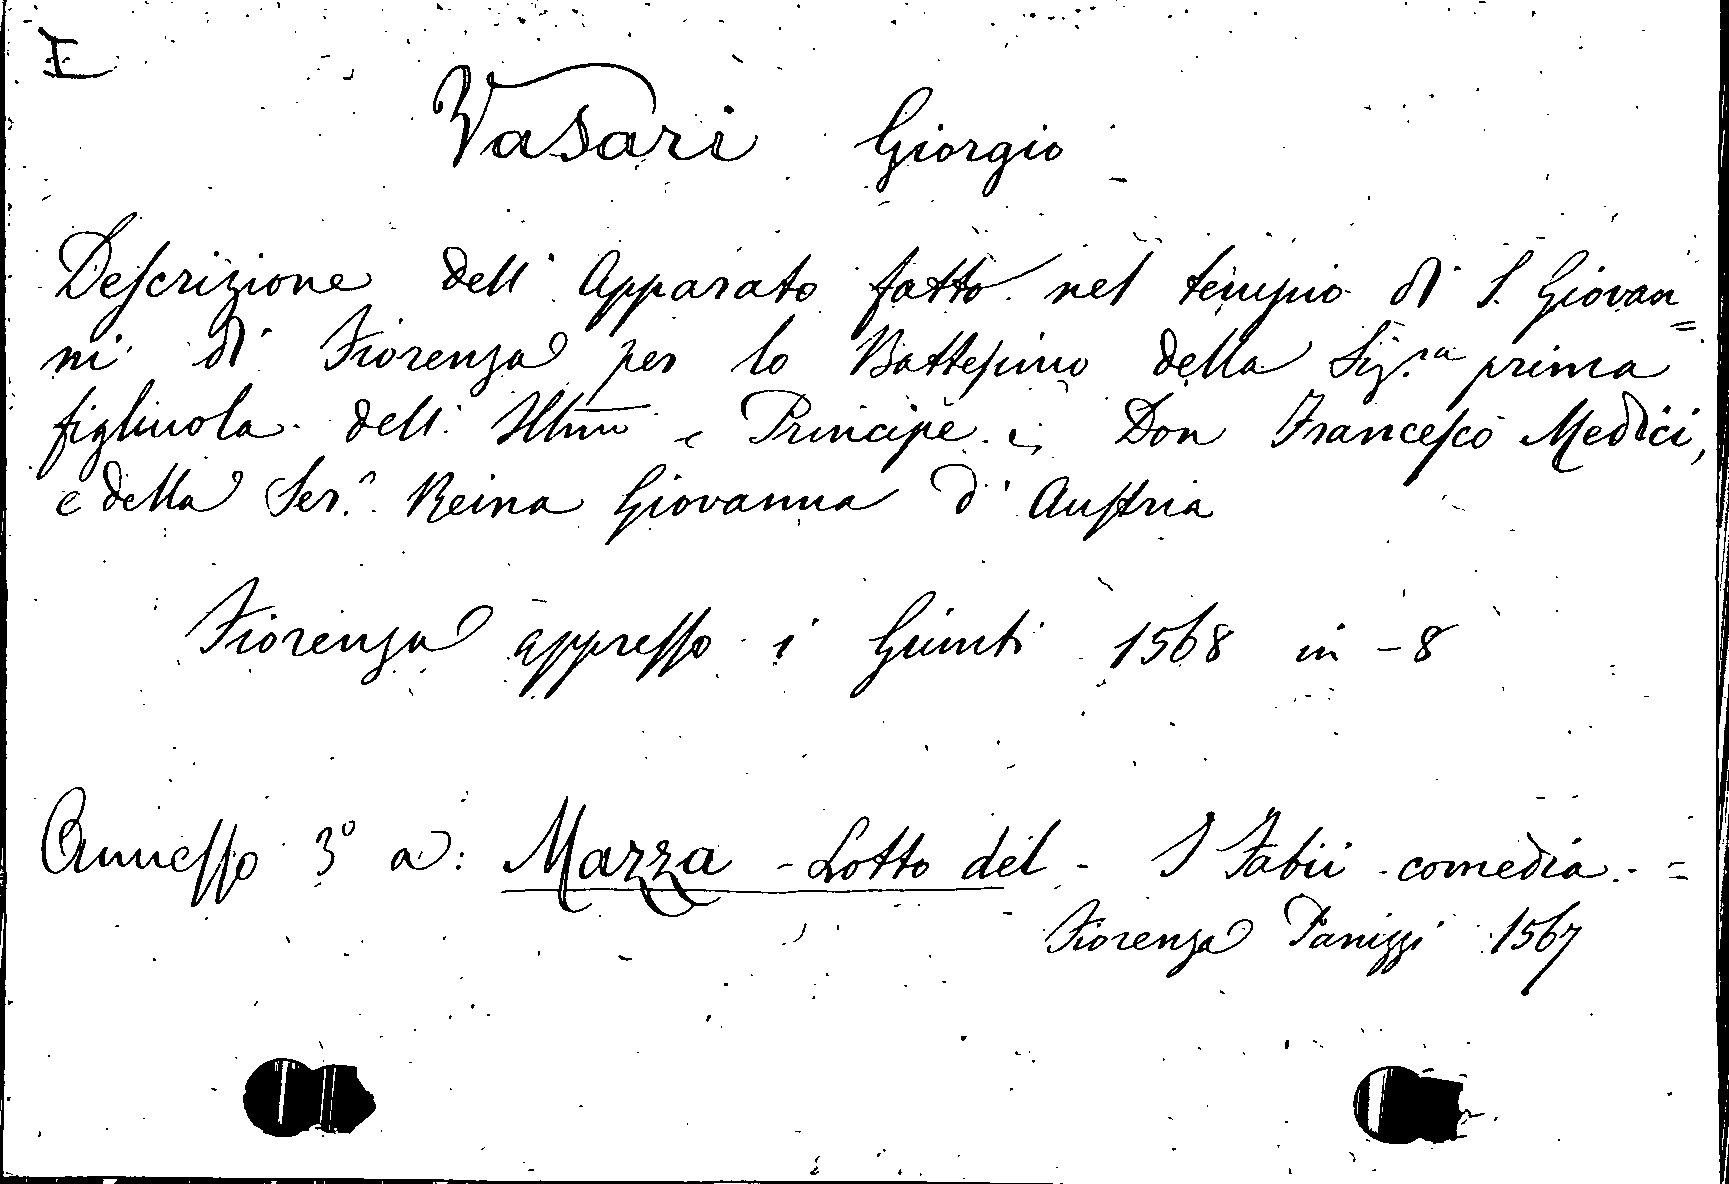 I
Vasari Giorgio
Descrizione dell' Apparato fatto nel tempio di S. Giovan=
ni di Fiorenza per lo Battesimo della Sig.ra prima
figliuola dell' Illmo e Principe Don Francesco Medici,
e della Ser.a Reina Giovanna d' Austria
Fiorenza appresso i Giunti 1568 in -8
Annesso 3º a: Mazza - Lotto del - I Fabii - comedia. =
Fiorenza Panizzi 1567